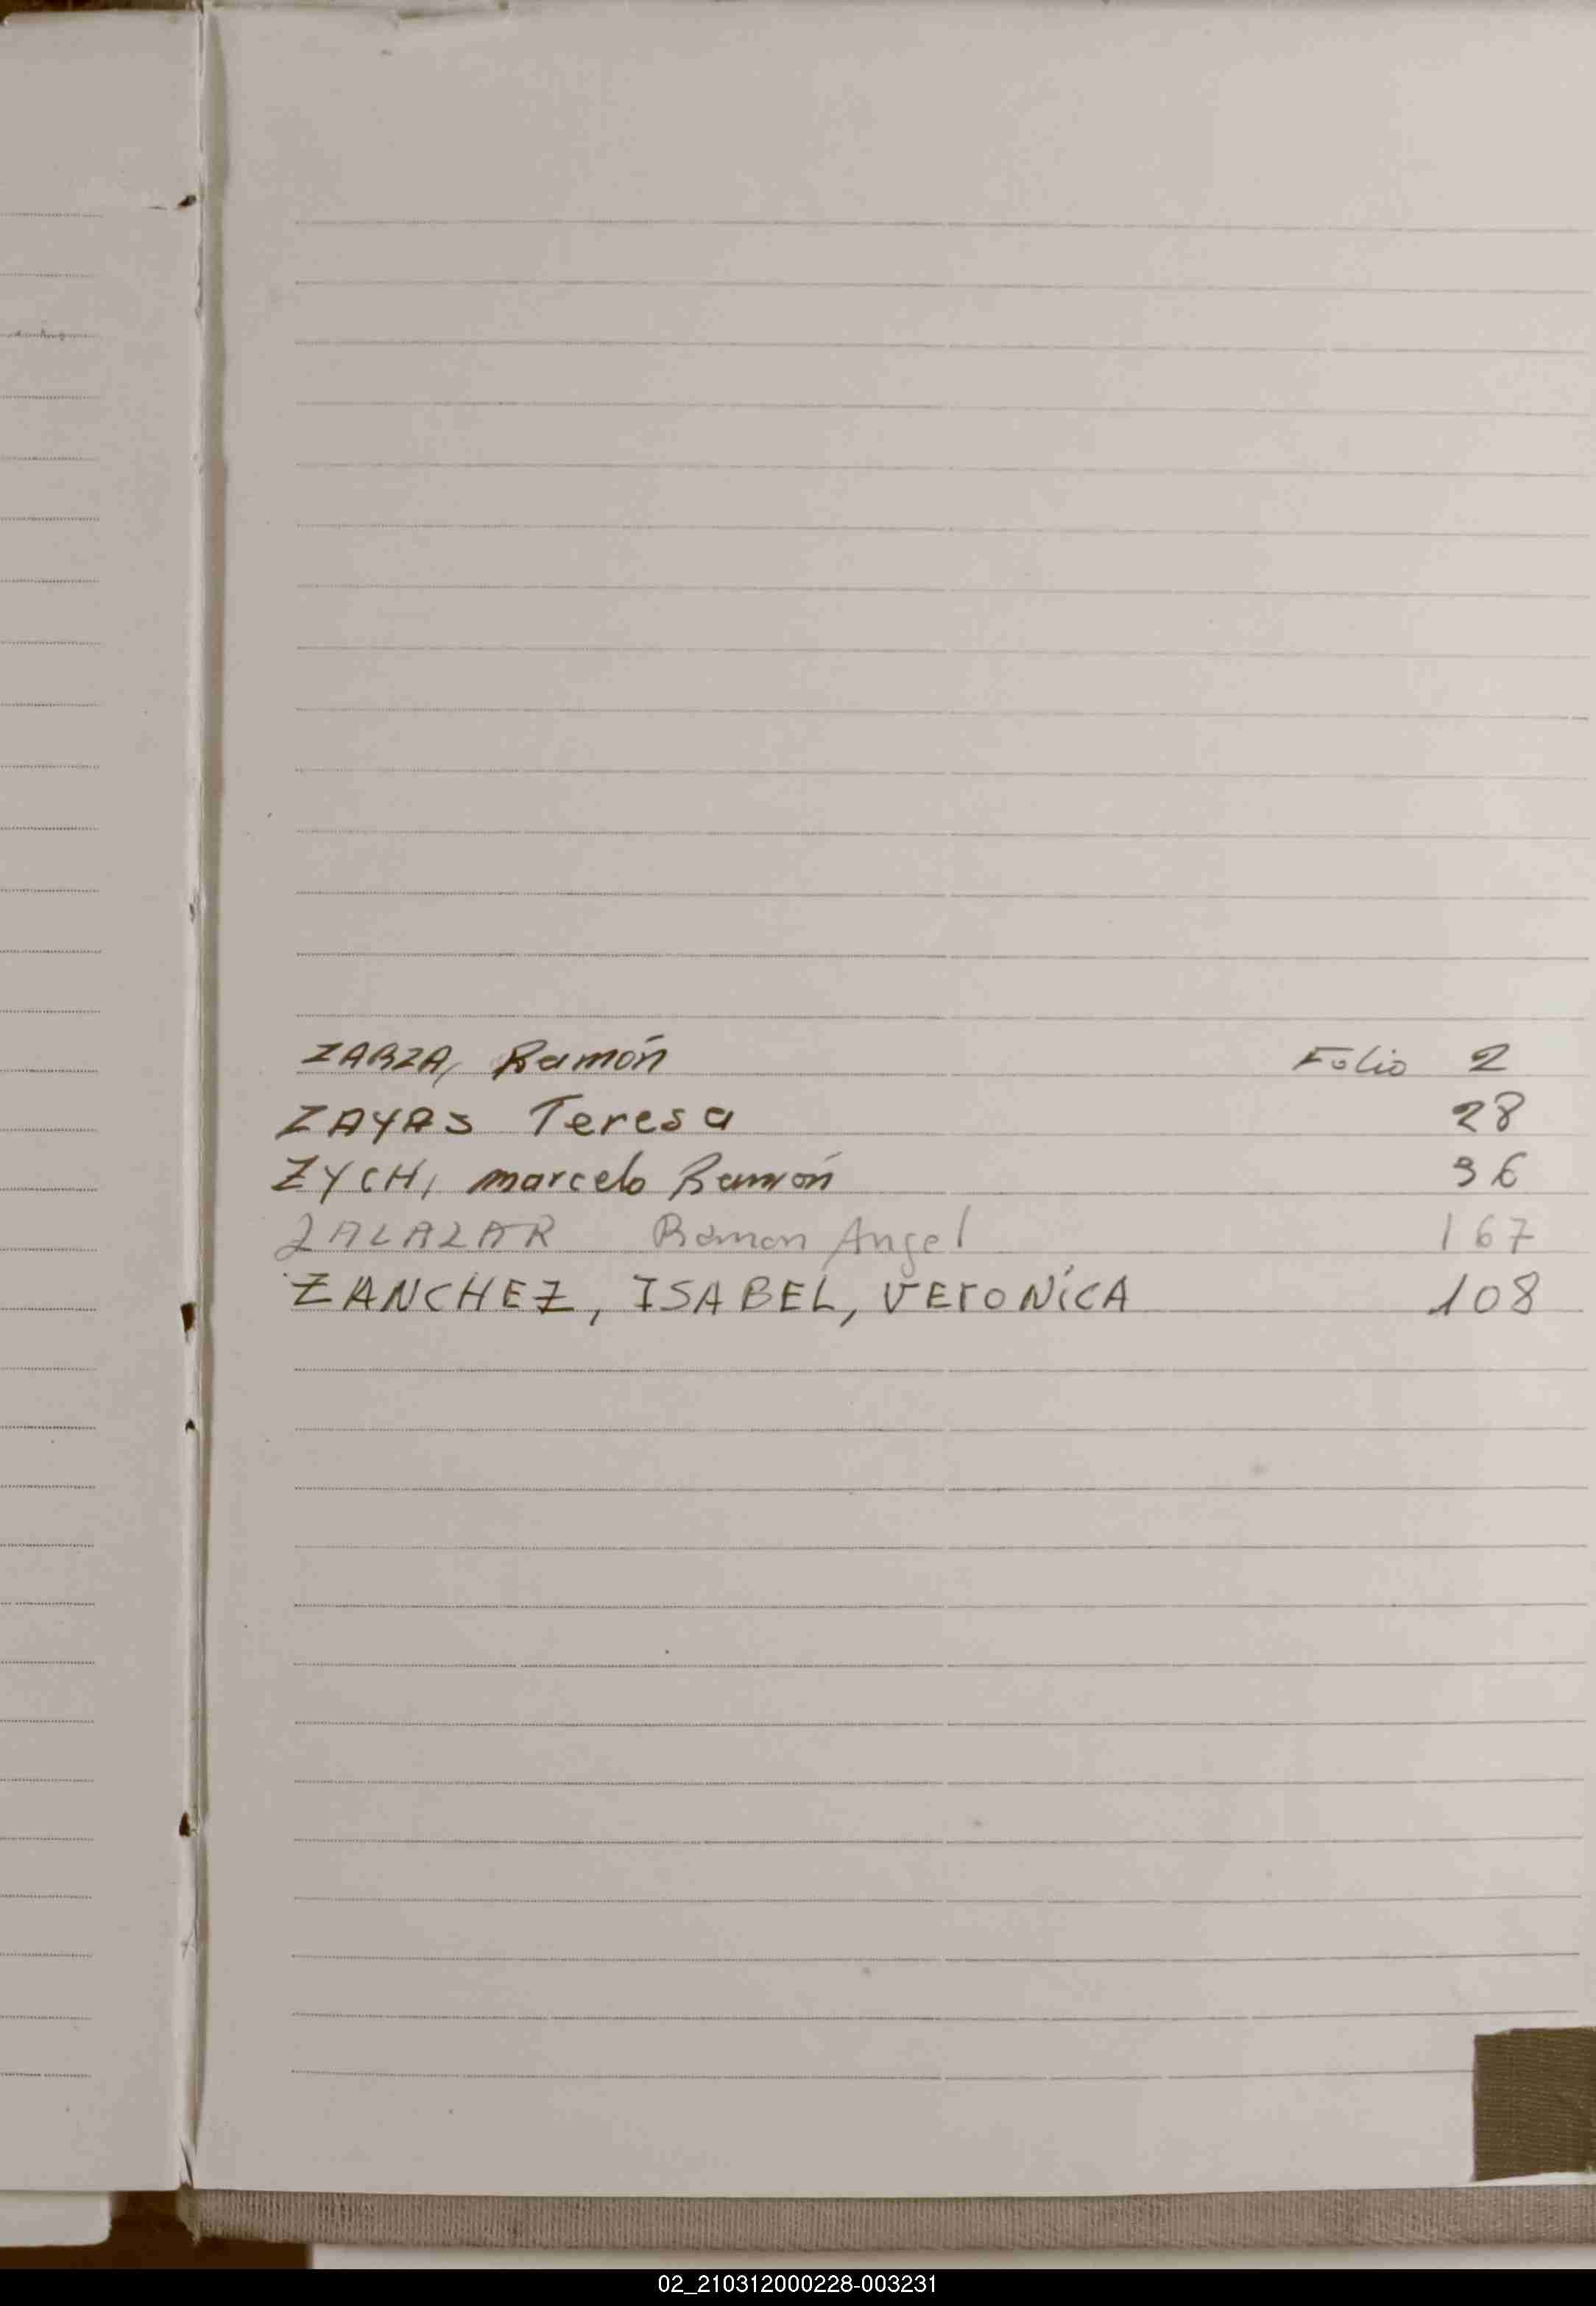 ZARZA, Ramón Folio 2
ZAYAS Teresa 28
ZYCH, marcelo Ramón 36
ZALAZAR Ramon Angel 167
ZANCHEZ, ISABEL, VEroNiCA 108
02_210312000228-003231